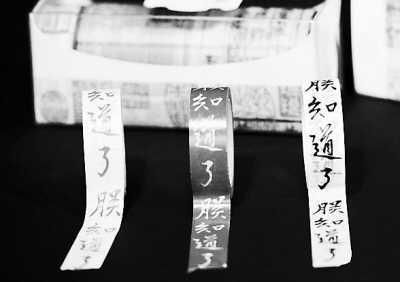 知
道
了
朕
知
道
了
朕
知
道
了
朕
知
道
了
朕
知
道
了
朕
知
道
了